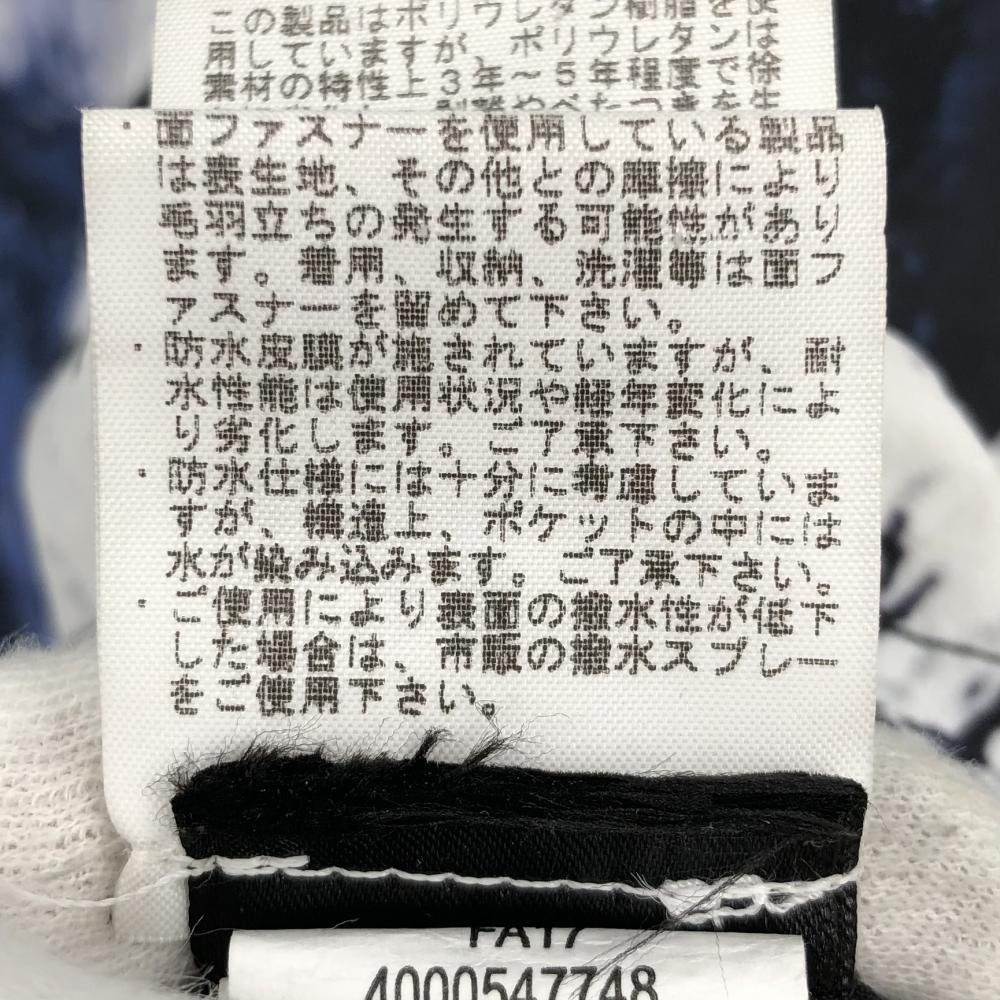 この製品はポリウレタン樹脂を使
用しています が、ポリウレタンは
素材の特性上3年~5年程度で徐
・面ファスナーを使用している製品
は表生地、その他との摩擦により
毛羽立ちの発生する可能性があり
ます。着用、収納、洗濯等は面フ
ァスナーを留めて下さい。
・防水皮膜が施されていますが、耐
水性能は使用状況や軽年変化によ
り劣化します。ご了承下さい。
・防水仕様には十分に考慮していま
すが、構造上、ポケットの中には
水が染み込みます。ご了承下さい。
・ご使用により表面の撥水性が低下
した場合は、市販の撥水スプレー
をご使用下さい。
FA17
4000547748